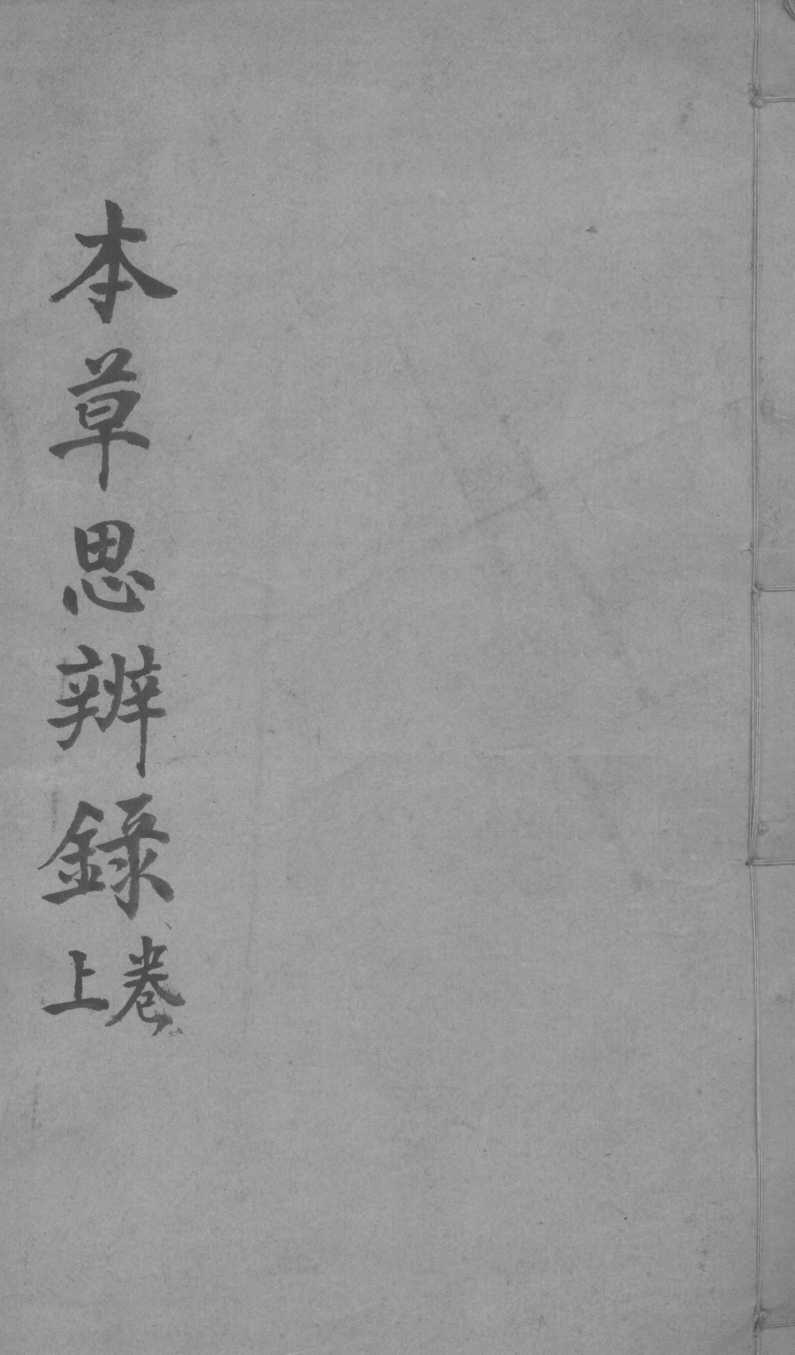 本草思辨錄
卷上